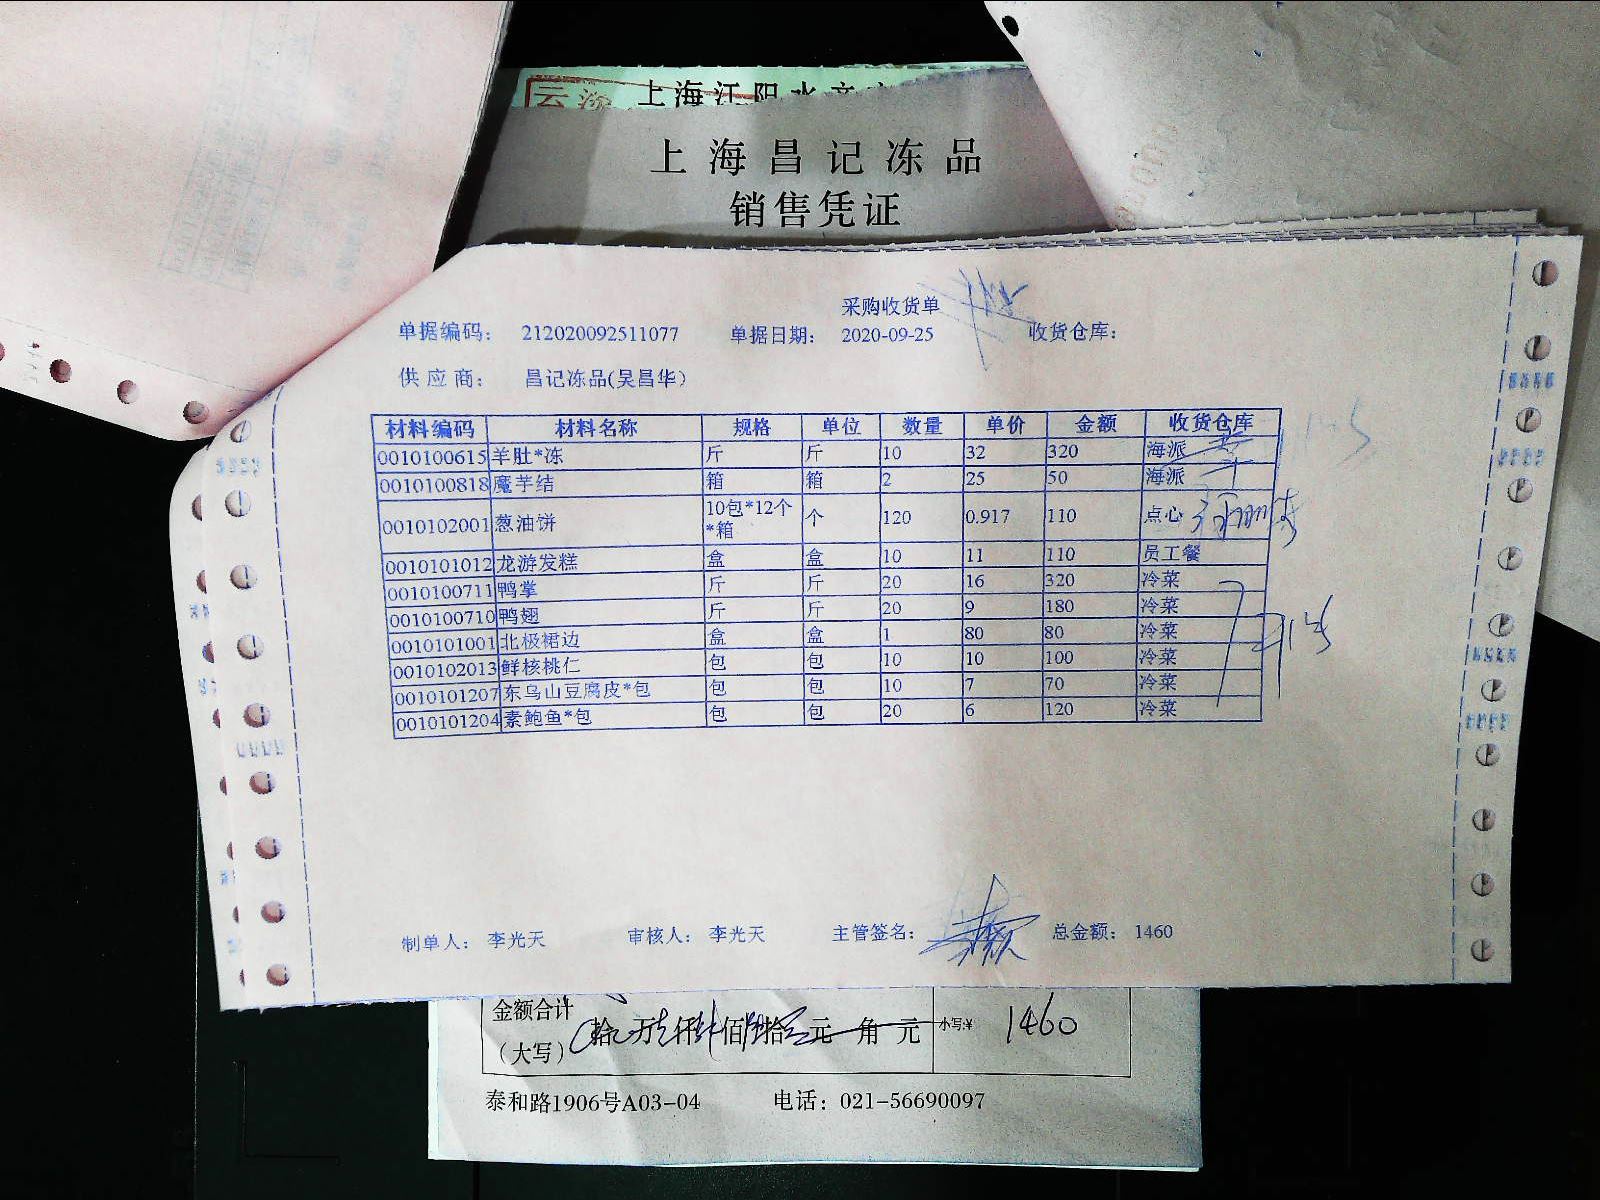 上海昌记冻品
销售凭证
采购收货单
单据编码: 212020092511077 单据日期: 2020-09-25 收货仓库:
供应商: 昌记冻品(吴昌华)
材料编码 材料名称 规格 单位 数量 单价 金额 收货仓库
0010100615 羊肚*冻 斤 斤 10 32 320 海派
0010100818 魔芋结 箱 箱 2 25 50 海派
0010102001 葱油饼 10包*12个*箱 个 120 0.917 110 点心
0010101012 龙游发糕 盒 盒 10 11 110 员工餐
0010100711 鸭掌 斤 斤 20 16 320 冷菜
0010100710 鸭翅 斤 斤 20 9 180 冷菜
0010101001 北极裙边 盒 盒 1 80 80 冷菜
0010102013 鲜核桃仁 包 包 10 10 100 冷菜
0010101207 东乌山豆腐皮*包 包 包 10 7 70 冷菜
0010101204 素鲍鱼*包 包 包 20 6 120 冷菜
制单人: 李光天 审核人: 李光天 主管签名: 总金额: 1460
金额合计
(大写) 拾 万 仟 佰 拾 元 角 元 小写:¥ 1460
泰和路1906号A03-04 电话: 021-56690097